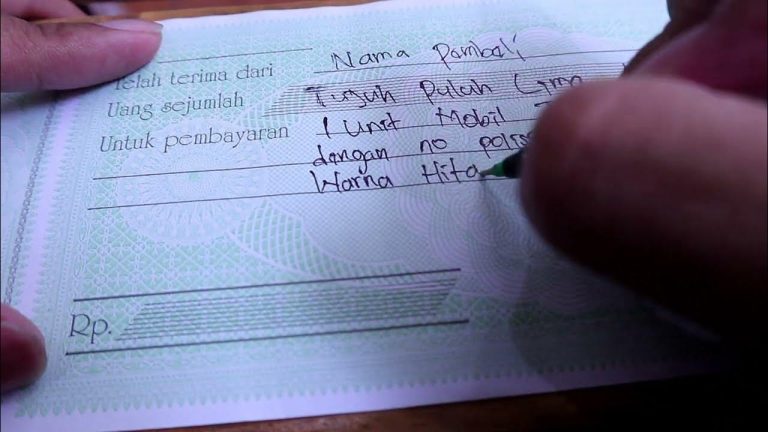 Telah terima dari Nama Pembeli
Uang sejumlah Tujuh Puluh Lima
Untuk pembayaran 1 Unit Mobil
dengan no polisi
Warna Hita
Rp.